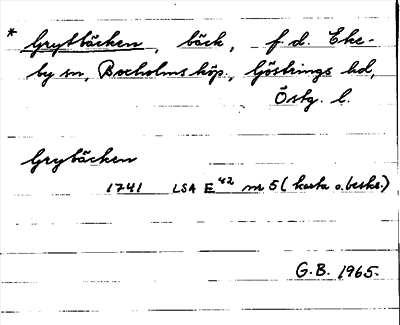 * Grytbäcken, bäck, f.d. Eke-
by sn, Boxholms köp., Göstrings hd,
Östg. l.
Grybäcken
1741 LSA E 42 nr 5 (karta o. beskr.)
G.B. 1965.